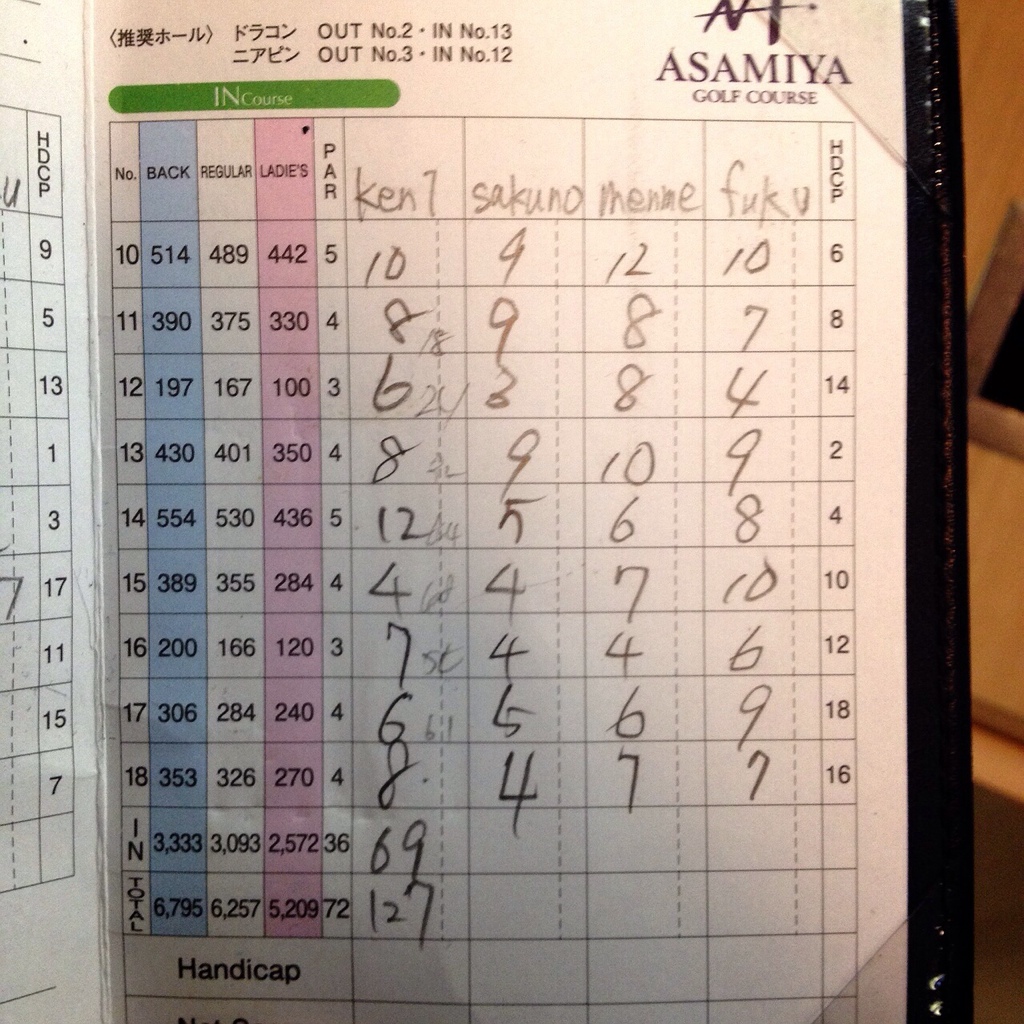 〈推奨ホール〉 ドラコン OUT No.2・IN No.13
ニアピン OUT No.3・IN No.12
ASAMIYA
GOLF COURSE
IN Course
HDCP
9
5
13
1
3
17
11
15
7
No. BACK REGULAR LADIE'S PAR ken7 sakuno menme fuku HDCP
10 514 489 442 5 10 9 12 10 6
11 390 375 330 4 8 18 9 8 7 8
12 197 167 100 3 6 3 8 4 14
13 430 401 350 4 8 9 10 9 2
14 554 530 436 5 12 5 6 8 4
15 389 355 284 4 4 4 7 10 10
16 200 166 120 3 7 4 4 6 12
17 306 284 240 4 6 61 5 6 9 18
18 353 326 270 4 8 4 7 7 16
IN 3,333 3,093 2,572 36 69
TOTAL 6,795 6,257 5,209 72 127
Handicap